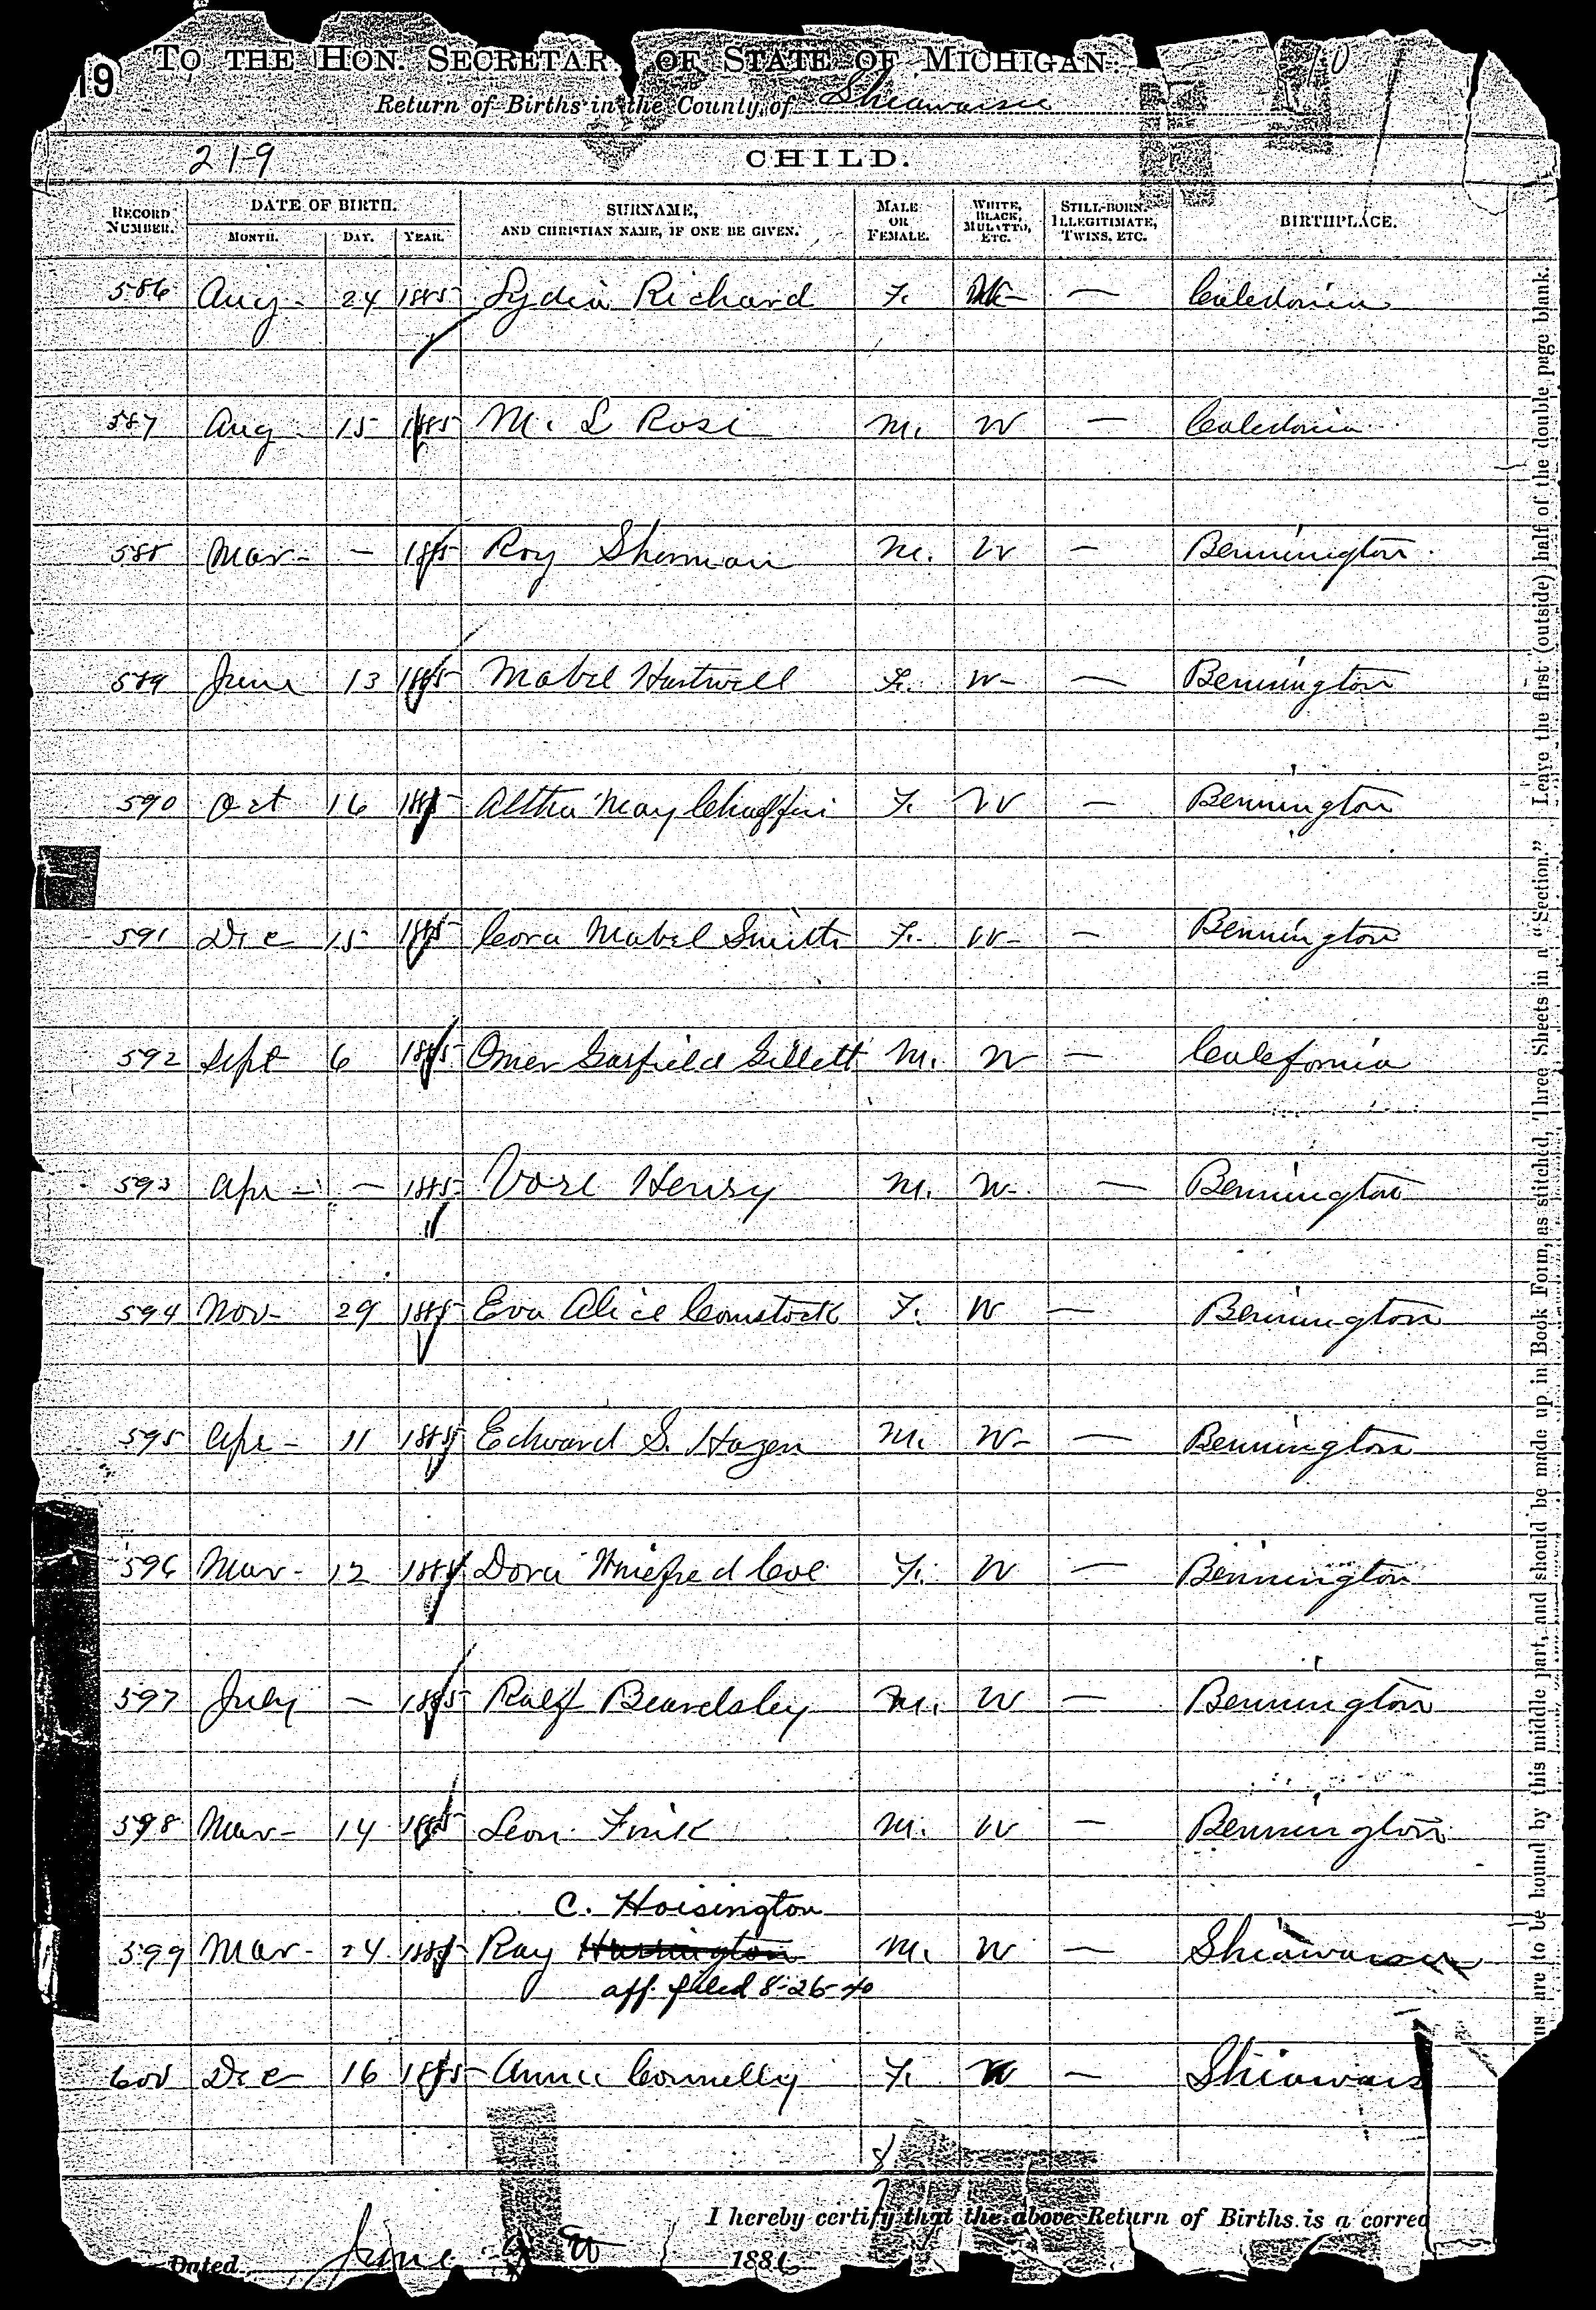 19
TO THE HON. SECRETAR OF STATE OF MICHIGAN.
10
Return of Births in the County of Shiawassee
219
CHILD.
RECORD NUMBER.
DATE OF BIRTH.
MONTH. DAY. YEAR.
SURNAME, AND CHRISTIAN NAME, IF ONE BE GIVEN.
MALE OR FEMALE.
WHITE, BLACK, MULATTO, ETC.
STILL-BORN, ILLEGITIMATE, TWINS, ETC.
BIRTHPLACE.
586 Aug- 24 1885 Lydia Richard F. W- — Caledonia
587 Aug 15 1885 M. L Rose M. W — Caledonia
588 Mar- — 1885 Roy Sherman M. W — Bennington
589 June 13 1885 Mabel Hartwell F. W- — Bennington
590 Oct 16 1885 Altha May Chaffin F. W — Bennington
591 Dec 15 1885 Cora Mabel Smith F. W- — Bennington
592 Sept 6 1885 Omer Garfield Gillett M. W — Calefornia
593 Apr- — 1885 Vose Henry M. W- — Bennington
594 Nov- 29 1885 Eva Alice Comstock F. W — Bennington
595 Apr- 11 1885 Edward S. Hazen M. W- — Bennington
596 Mar- 12 1885 Dora Winefred Cole F. W — Bennington
597 July — 1885 Ralf Beardsley M. W — Bennington
598 Mar- 14 1885 Leon Fink M. W — Bennington
C. Hoisington
599 Mar- 24 1885 Ray Harrington M. W — Shiawassee
aff. filed 8-26-40
600 Dec 16 1885 Annie Connelly F. W — Shiawass
I hereby certify that the above Return of Births is a correc
Dated June 1886
Leave the first (outside) half of the double page blank.
Three Sheets in a "Section."
ns are to be bound by this middle part, and should be made up in Book Form, as stitched,